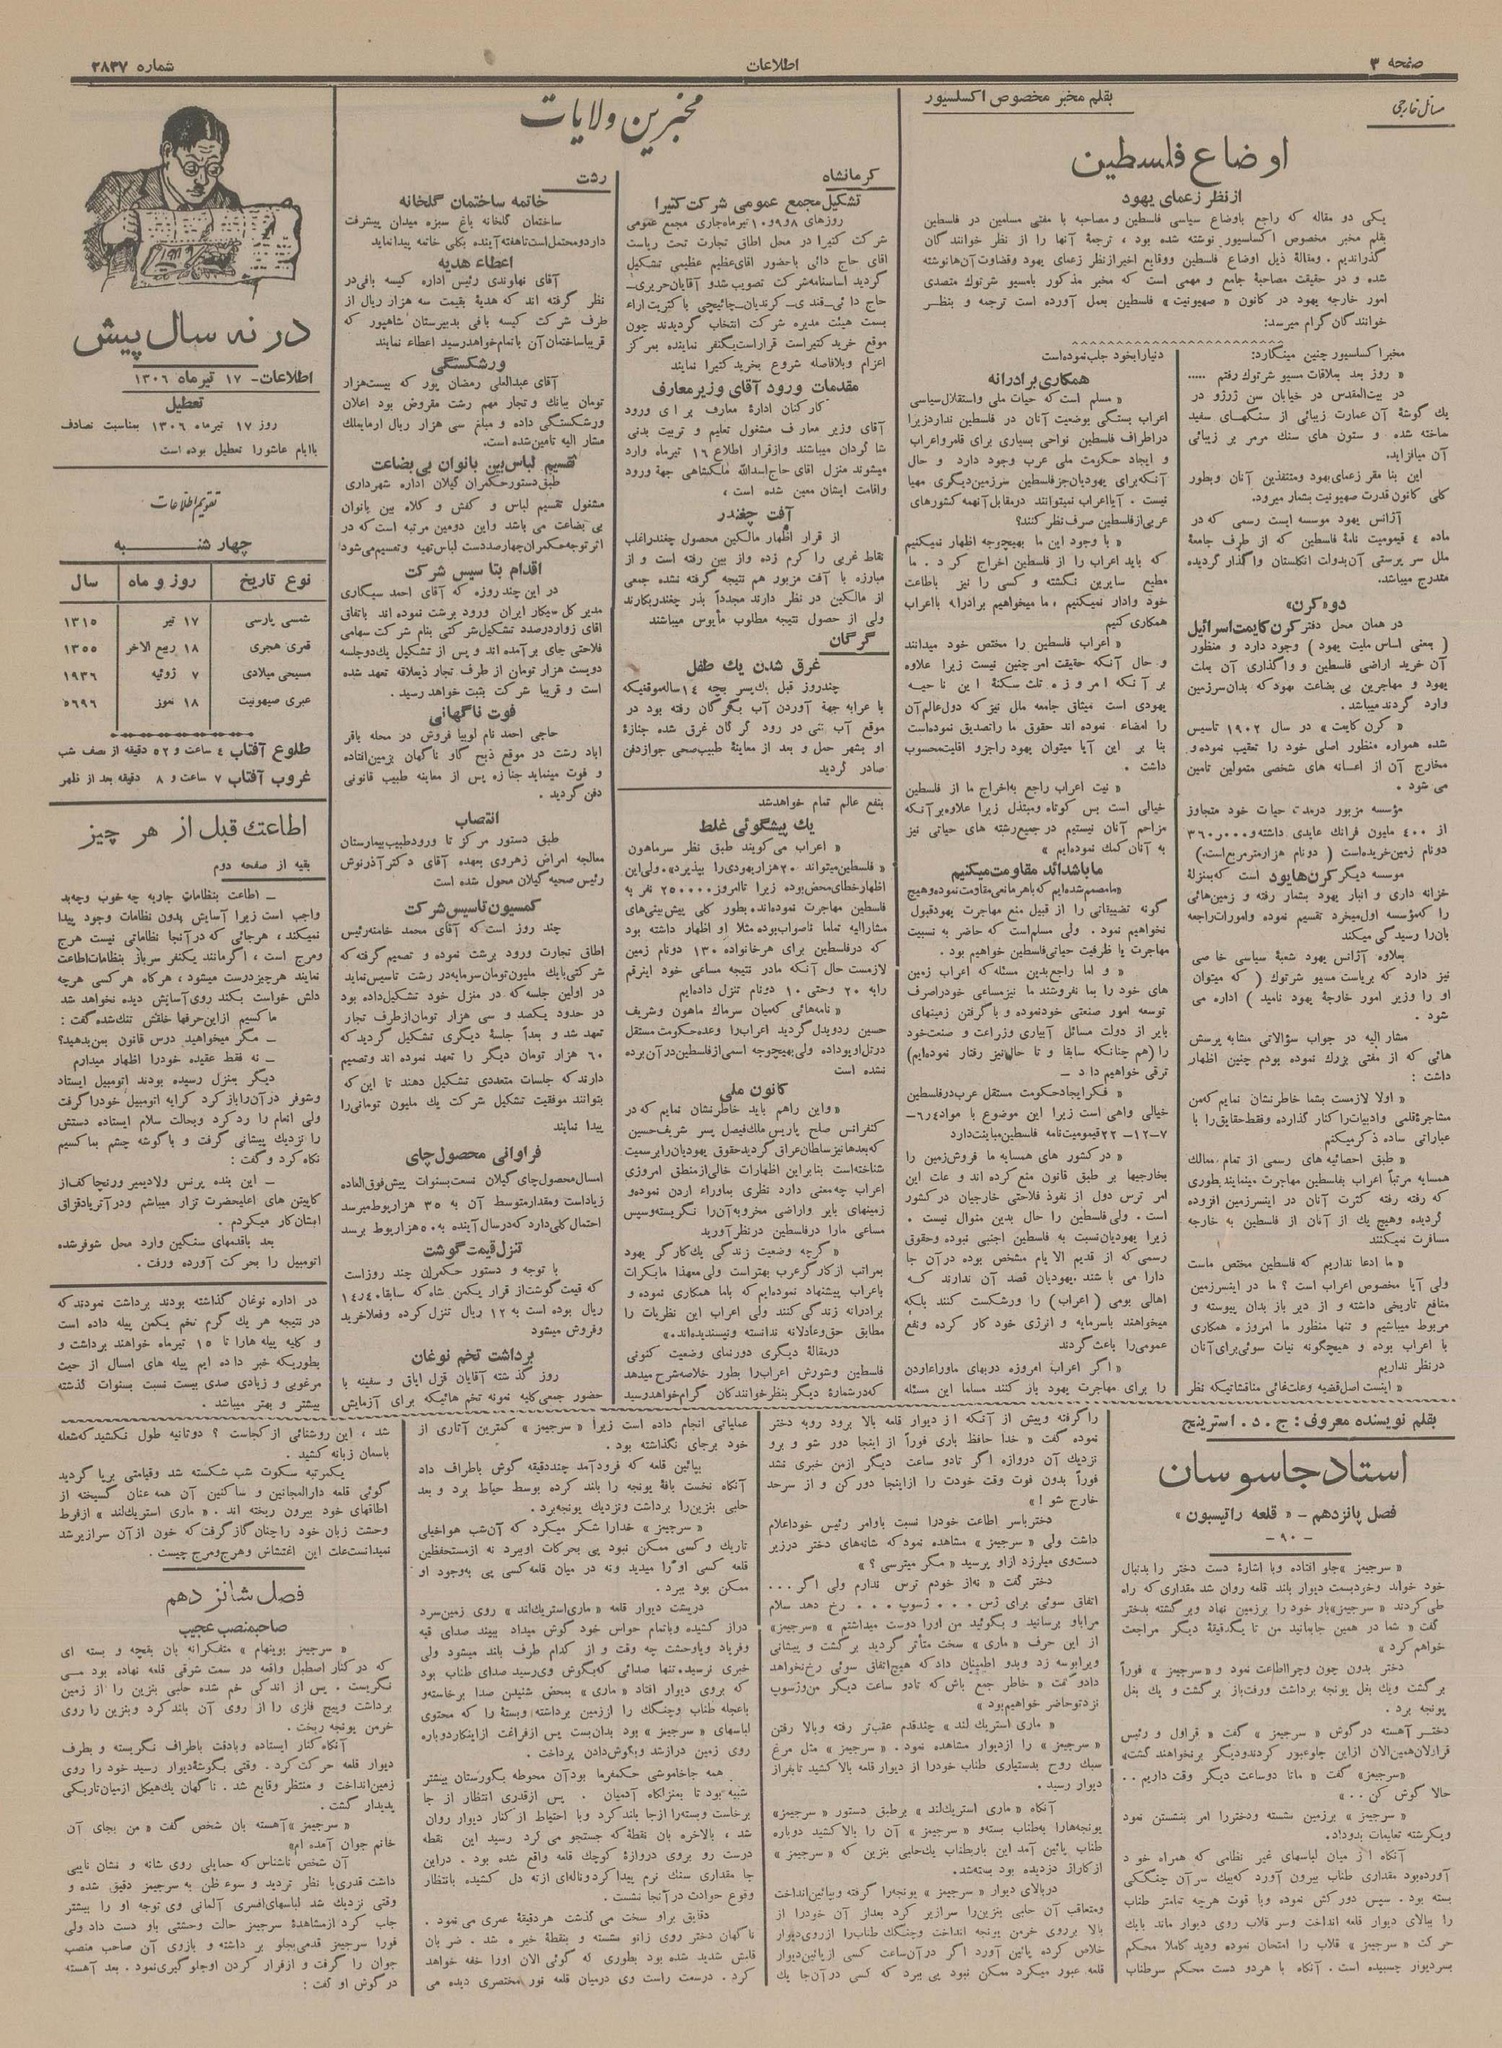 صفحه ۳
اطلاعات
شماره ۲۸۳۷
مسائل خارجی
بقلم مخبر مخصوص اکسلسیور
اوضاع فلسطین
ازنظر زعمای یهود
یکی دو مقاله که راجع باوضاع سیاسی فلسطین و مصاحبه با مفتی مسلمین در فلسطین
بقلم مخبر مخصوص اکسلسیور نوشته شده بود ، ترجمهٔ آنها را از نظر خوانندگان
گذراندیم . ومقالهٔ ذیل اوضاع فلسطین ووقایع اخیرازنظر زعمای یهود وقضاوت آن‌هانوشته
شده و در حقیقت مصاحبهٔ جامع و مهمی است که مخبر مذکور بامسیو شرتوك متصدی
امور خارجه یهود در کانون « صهیونیت» فلسطین بعمل آورده است ترجمه و بنظر
خوانندگان گرام میرسد:
مخبراکسلسیور چنین مینگارد:
« روز بعد بملاقات مسیو شرتوك رفتم .....
در بیت‌المقدس در خیابان سن ژرژو در
یك گوشهٔ آن عمارت زیبائی از سنگهای سفید
ساخته شده و ستون های سنك مرمر بر زیبائی
آن میافزاید.
این بنا مقر زعمای‌یهود ومتنفذین آنان وبطور
کلی کانون قدرت صهیونیت بشمار میرود.
آژانس یهود موسسه ایست رسمی که در
ماده ٤ قیمومیت نامهٔ فلسطین که از طرف جامعهٔ
ملل سر پرستی آن‌بدولت انگلستان واگذار گردیده
مندرج میباشد.
دو «کرن»
در همان محل دفتر کرن کایمت‌اسرائیل
( یعنی اساس ملیت یهود) وجود دارد و منظور
آن خرید اراضی فلسطین و واگذاری آن بملت
یهود و مهاجرین بی بضاعت یهودکه بدان‌سرزمین
وارد گردند میباشد.
« کرن کایمت » در سال ۱۹۰۲ تاسیس
شده همواره منظور اصلی خود را تعقیب نموده‌و
مخارج آن از اعسانه های شخصی متمولین تامین
می شود .
مؤسسه مزبور درمدت حیات خود متجاوز
از ٤٠٠ ملیون فرانك عایدی داشته‌و۳۶۰٫۰۰۰
دونام زمین‌خریده‌است ( دونام هزارمترمربع‌است.)
موسسه دیگر کرن‌هایود است که‌بمنزلهٔ
خزانه داری و انبار یهود بشمار رفته و زمین‌هائی
را که‌مؤسسه اول‌میخرد تقسیم نموده وامورات‌راجعه
بان‌را رسیدگی میکند
بعلاوه آژانس یهود شعبهٔ سیاسی خاصی
نیز دارد که بریاست مسیو شرتوك ( که میتوان
او را وزیر امور خارجهٔ یهود نامید ) اداره می
شود .
مشار الیه در جواب سؤالاتی مشابه پرسش
هائی که از مفتی بزرك نموده بودم چنین اظهار
داشت :
« اولا لازمست بشما خاطرنشان نمایم که‌من
مشاجرهٔ‌قلمی وادبیات‌را کنار گذارده وفقط‌حقایق‌را با
عباراتی ساده ذکرمیکنم
« طبق احصائیه های رسمی از تمام ممالك
همسایه مرتباً اعراب بفلسطین مهاجرت مینمایندبطوری
که رفته رفته کثرت آنان در اینسرزمین افزوده
گردیده وهیچ یك از آنان از فلسطین به خارجه
مسافرت نمیکنند
« ما ادعا نداریم که فلسطین مختص ماست
ولی آیا مخصوص اعراب است ؟ ما در اینسرزمین
منافع تاریخی داشته و از دیر باز بدان پیوسته و
مربوط میباشیم و تنها منظور ما امروزه همکاری
با اعراب بوده و هیچگونه نیات سوئی‌برای‌آنان
درنظر نداریم
« اینست اصل‌قضیه وعلت‌غائی مناقشاتیکه نظر
دنیارابخود جلب‌نموده‌است
همکاری‌برادرانه
« مسلم است که حیات ملی واستقلال‌سیاسی
اعراب بستگی بوضعیت آنان در فلسطین نداردزیرا
دراطراف فلسطین نواحی بسیاری برای قلمرواعراب
و ایجاد حکومت ملی عرب وجود دارد و حال
آنکه‌برای یهودیان‌جزفلسطین سرزمین‌دیگری مهیا
نیست . آیااعراب نمیتوانند درمقابل‌آنهمه کشورهای
عربی‌ازفلسطین صرف‌نظر کنند؟
« با وجود این ما بهیچوجه اظهار نمیکنیم
که باید اعراب را از فلسطین اخراج کرد . ما
مطیع سایرین نگشته و کسی را نیز باطاعت
خود وادار نمیکنیم ، ما میخواهیم برادرانه بااعراب
همکاری کنیم
« اعراب فلسطین را مختص خود میدانند
و حال آنکه حقیقت امر چنین نیست زیرا علاوه
بر آنکه امروزه ثلث سکنهٔ این ناحیه
یهودی است میثاق جامعه ملل نیز که دول‌عالم‌آن
را امضاء نموده اند حقوق ما راتصدیق نموده‌است
بنا بر این آیا میتوان یهود راجزو اقلیت‌محسوب
داشت .
« نیت اعراب راجع به‌اخراج ما از فلسطین
خیالی است بس کوتاه ومبتذل زیرا علاوه‌برآنکه
مزاحم آنان نیستیم در جمیع‌رشته های حیاتی نیز
به آنان کمك نموده‌ایم »
ماباشدائد مقاومت‌میکنیم
«مامصمم‌شده‌ایم که‌باهرمانعی‌مقاومت‌نموده‌وهیچ
گونه تضییقاتی را از قبیل منع مهاجرت یهودقبول
نخواهیم نمود . ولی مسلم‌است که حاضر به نسبیت
مهاجرت با ظرفیت حیاتی‌فلسطین خواهیم بود .
« و اما راجع‌بدین مسئله که اعراب زمین
های خود را بما نفروشند ما نیزمساعی خودراصرف
توسعه امور صنعتی خودنموده و باگرفتن زمینهای
بایر از دولت مسائل آبیاری وزراعت و صنعت‌خود
را (هم چنانکه سابقا و تا حال‌نیز رفتار نموده‌ایم)
ترقی خواهیم داد –
« فکرایجادحکومت مستقل عرب‌درفلسطین
خیالی واهی است زیرا این موضوع با مواد٤ر٦–
۷–۱۲– ۲۲قیمومیت‌نامه فلسطین‌مباینت‌دارد
« درکشور های همسایه ما فروش‌زمین را
بخارجیها بر طبق قانون منع کرده اند و علت این
امر ترس دول از نفوذ فلاحتی خارجیان در کشور
است . ولی‌فلسطین را حال بدین منوال نیست .
زیرا یهودیان‌نسبت به فلسطین اجنبی نبوده وحقوق
رسمی که از قدیم الا یام مشخص بوده درآن جا
دارا می باشند .یهودیان قصد آن ندارند که
اهالی بومی (اعراب) را ورشکست کنند بلکه
میخواهند باسرمایه و انرژی خود کار کرده ونفع
عمومی‌را باعث گردند
« اگر اعراب امروزه دربهای ماوراءاردن
را برای مهاجرت یهود باز کنند مسلما این مسئله
مخبرین ولایات
کرمانشاه
تشکیل مجمع عمومی شرکت کتیرا
روزهای ۸ و۹و۱۰ تیرماه‌جاری مجمع عمومی
شرکت کتیرا در محل اطاق تجارت تحت ریاست
اقای حاج دائی باحضور اقای‌عظیم عظیمی تشکیل
گردید اساسنامه شرکت تصویب شدو آقایان‌حریری–
حاج دائی‌–قندی– کرندیان–چائیچی با کثریت‌اراء
بست هیئت مدیره شرکت انتخاب گردیدند چون
موقع خرید کتیراست قراراست‌یکنفر نماینده بمرکز
اعزام وبلافاصله شروع بخرید کتیرا نمایند
مقدمات ورود آقای وزیرمعارف
کارکنان ادارهٔ معارف برای ورود
آقای وزیر معارف مشغول تعلیم و تربیت بدنی
شاگردان میباشند وازقرار اطلاع ۱٦ تیرماه وارد
میشوند منزل آقای حاج‌اسدالله ملکشاهی جهة ورود
واقامت ایشان معین شده است ،
آفت چغندر
از قرار اظهار مالکین محصول چغندراغلب
نقاط غربی را کرم زده واز بین رفته است و از
مبارزه با آفت مزبور هم نتیجه گرفته نشده جمعی
از مالکین در نظر دارند مجدداً بذر چغندربکارند
ولی از حصول نتیجه مطلوب مأیوس میباشند
گرگان
غرق شدن یك طفل
چندروز قبل یك‌پسر بچه ۱٤ ساله‌موقعیکه
با عرابه جهة آوردن آب بگرگان رفته بود در
موقع آب تنی در رود گرگان غرق شده جنازهٔ
او بشهر حمل و بعد از معاینهٔ طبیب‌صحی جوازدفن
صادر گردید
بنفع عالم تمام خواهدشد
یك پیشگوئی غلط
« اعراب می‌گویند طبق نظر سرماهون
« فلسطین‌میتواند ۲۰هزاریهودی‌را بپذیرد».ولی‌این
اظهارخطای‌محض‌بوده زیرا تاامروز ۲۵۰۰۰۰ نفر به
فلسطین مهاجرت نموده‌اند.بطور کلی پیش‌بینی‌های
مشارالیه تماما ناصواب‌بوده مثلا او اظهار داشته بود
که درفلسطین برای هرخانواده ۱۳۰ دونام زمین
لازمست حال آنکه مادر نتیجه مساعی خود اینرقم
رابه ۲۰ وحتی ۱۰ دونام تنزل داده‌ایم
« نامه‌هائی که‌میان سرماك ماهون وشریف
حسین ردوبدل گردید اعراب‌را وعده‌حکومت مستقل
درتل‌اویوداده ولی‌بهیچوجه اسمی‌ازفلسطین‌درآن‌برده
نشده است
کانون ملی
«واین راهم باید خاطرنشان نمایم که‌در
کنفرانس صلح پاریس‌ملك‌فیصل پسر شریف‌حسین
که‌بعدهانیزسلطان‌عراق گردیدحقوق یهودیان‌رابرسمیت
شناخته‌است بنابراین اظهارات خالی‌ازمنطق امروزی
اعراب چه‌معنی دارد نظری بماوراء اردن نموده‌و
زمینهای بایر واراضی مخروبه‌آن‌را نگریسته‌وسپس
مساعی مارا درفلسطین درنظرآورید
« گرچه وضعیت زندگی یك‌کارگر یهود
بمراتب ازکارگرعرب بهتراست ولی معهذا مابکرات
باعراب پیشنهاد نموده‌ایم‌که باما همکاری نموده و
برادرانه زندگی‌کنند ولی اعراب این نظریات را
مطابق حق‌وعادلانه ندانسته ونپسندیده‌اند.»
درمقالهٔ دیگری دورنمای وضعیت کنونی
فلسطین وشورش اعراب‌را بطور خلاصه‌شرح میدهد
که‌درشمارهٔ دیگر بنظرخوانندکان گرام‌خواهدرسید
رشت
خاتمه ساختمان گلخانه
ساختمان گلخانه باغ سبزه میدان پیشرفت
داردومحتمل‌است تاهفته‌آینده بکلی خاتمه پیدانماید
اعطاء هدیه
آقای نهاوندی رئیس اداره کیسه بافی‌در
نظر گرفته اند که هدیهٔ بقیمت سه هزار ریال از
طرف شرکت کیسه بافی بدبیرستان شاهپور که
قریباساختمان آن باتمام‌خواهدرسید اعطاء نمایند
ورشکستگی
آقای عبدالعلی رمضان پور که بیست‌هزار
تومان ببانك و تجار مهم رشت مقروض بود اعلان
ورشکستگی داده و مبلغ سی هزار ریال ازمایملك
مشار الیه تامین‌شده است.
تقسیم لباس‌بین بانوان بی‌بضاعت
طبق‌دستورحکمران گیلان اداره شهرداری
مشغول تقسیم لباس و کفش و کلاه بین بانوان
بی بضاعت می باشد واین دومین مرتبه است که در
اثرتوجه‌حکمران‌چهارصددست لباس‌تهیه وتقسیم‌می‌شود
اقدام بتاسیس شرکت
در این‌چند روزه که آقای احمد سیگاری
مدیر کل سیکار ایران ورود برشت نموده اند باتفاق
آقای زواردرصدد تشکیل‌شرکتی بنام شرکت سهامی
فلاحتی چای برآمده اند و پس از تشکیل یك‌دوجلسه
دویست هزار تومان از طرف تجار ذیعلاقه تعهد شده
است و قریبا شرکت بثبت خواهد رسید .
فوت ناگهانی
حاجی احمد نام لوبیا فروش در محله باقر
اباد رشت در موقع ذبح گاو ناگهان بزمین‌افتاده
و فوت مینماید جنازه پس از معاینه طبیب قانونی
دفن گردید .
انتصاب
طبق دستور مرکز تا ورودطبیب‌بیمارستان
معالجه امراض زهروی بعهده آقای دکترآذرنوش
رئیس صحیه گیلان محول شده است
کمسیون تاسیس شرکت
چند روز است که آقای محمد خامنه‌رئیس
اطاق تجارت ورود برشت نموده و تصمیم گرفته که
شرکتی بایك ملیون‌تومان‌سرمایه‌در رشت تاسیس‌نماید
در اولین جلسه که در منزل خود تشکیل‌داده بود
در حدود یکصد و سی هزار تومان‌ازطرف تجار
تعهد شد و بعداً جلسهٔ دیگری تشکیل گردید که
٦٠ هزار تومان دیگر را تعهد نموده اند وتصمیم
دارند که جلسات متعددی تشکیل دهند تا این که
بتوانند موفقیت تشکیل شرکت یك ملیون تومانی‌را
پیدا نمایند
فراوانی محصول‌چای
امسال‌محصول‌چای گیلان نسبت‌بسنوات پیش‌فوق‌العاده
زیاداست ومقدارمتوسط آن به ۳۵ هزاربوط‌میرسد
احتمال‌کلی‌دارد که‌درسال آینده به۵۰هزاربوط برسد
تنزل‌قیمت‌گوشت
با توجه و دستور حکمران چند روزاست
که قیمت گوشت‌از قرار یکمن شاه که سابقا۱۴ر۴۰
ریال بوده است به ۱۲ ریال تنزل کرده وفعلاخرید
وفروش میشود
برداشت تخم نوغان
روز گذشته آقایان قزل ایاق و سفینه با
حضور جمعی‌کلیه نمونه تخم هائیکه برای آزمایش
در نه سال پیش
اطلاعات– ۱۷ تیرماه ۱۳۰۶
تعطیل
روز ۱۷ تیرماه ۱۳۰۶ بمناسبت تصادف
باایام عاشورا تعطیل بوده است
تقویم اطلاعات
چهارشنبه
نوع تاریخ روز و ماه سال
شمسی پارسی ۱۷ تیر ۱۳۱۵
قمری هجری ۱۸ ربیع الاخر ۱۳۵۵
مسیحی میلادی ۷ ژوئیه ۱۹۳۶
عبری صیهونیت ۱۸ تموز ۵۶۹۶
طلوع آفتاب ٤ ساعت و ۵۲ دقیقه از نصف شب
غروب آفتاب ۷ ساعت و ۸ دقیقه بعد از ظهر
اطاعت قبل از هر چیز
بقیه از صفحه دوم
– اطاعت بنظامات جاریه چه خوب وچه‌بد
واجب است زیرا آسایش بدون نظامات وجود پیدا
نمیکند ، هرجائی که درآنجا نظاماتی نیست هرج
ومرج است ، اگرمانند یکنفر سرباز بنظامات‌اطاعت
نمایند هرچیزدرست میشود ، هرکاه هرکسی هرچه
دلش خواست بکند روی‌آسایش دیده نخواهد شد
ماکسیم ازاین‌حرفها خلقش تنك‌شده گفت :
– مگر میخواهید درس قانون بمن‌بدهید؟
– نه فقط عقیده خودرا اظهار میدارم
دیگر بمنزل رسیده بودند اتومبیل ایستاد
وشوفر درآن‌راباز کرد کرایه اتومبیل خودراگرفت
ولی انعام را رد کرد وبحالت سلام ایستاده دستش
را نزدیك پیشانی گرفت و باگوشه چشم بماکسیم
نکاه کرد و گفت :
– این بنده پرنس ولادیمیر ورنچاکف‌از
کاپیتن های اعلیحضرت تزار میباشم ودرآتریادقزاق
ایشان‌کار میکردم .
بعد باقدمهای سنگین وارد محل شوفرشده
اتومبیل را بحرکت آورده ورفت .
در اداره نوغان گذاشته بودند برداشت نمودند که
در نتیجه هر یك گرم تخم یکمن پیله داده است
و کلیه پیله هارا تا ۱۵ تیرماه خواهند برداشت و
بطوریکه خبر داده ایم پیله های امسال از حیث
مرغوبی و زیادی صدی بیست نسبت بسنوات گذشته
بیشتر و بهتر میباشد .
بقلم نویسنده معروف: ج . د . استرینج
استاد جاسوسان
فصل پانزدهم – « قلعه راتیسبون »
– ۹۰ –
« سرجیمز »جلو افتاده وبا اشارهٔ دست دختر را بدنبال
خود خواند وخردیست دیوار بلند قلعه روان شد مقداری که راه
طی‌کردند « سرجیمز»بار خود را برزمین نهاد وبرگشته بدختر
گفت « شما در همین جابمانید من تا یك‌دقیقهٔ دیگر مراجعت
خواهم کرد »
دختر بدون چون وچرااطاعت نمود و«سرجیمز » فوراً
برگشت ویك بغل یونجه برداشت ورفت‌باز برگشت و یك بغل
یونجه برد .
دختر آهسته درگوش « سرجیمز » گفت « قراول و رئیس
قراولان‌همین‌الان ازاین جاوعبور کردندودیگر برنخواهند گشت»
«سرجیمز» گفت « ماتا دوساعت دیگر وقت داریم ..
حالا گوش کن ..»
« سرجیمز » برزمین نشسته ودختررا امر بنشستن نمود
ویکرشته تعلیمات بدوداد.
آنکاه از میان لباسهای غیر نظامی که همراه خود
آورده‌بود مقداری طناب بیرون آورد که‌بیك سرآن چنگکی
بسته بود . سپس دورکش نموده وبا قوت هرچه تمامتر طناب
را ببالای دیوار قلعه انداخت وسر قلاب روی دیوار ماند بایك
حرکت « سرجیمز » قلاب را امتحان نموده ودید کاملا محکم
بسردیوار چسبیده است . آنکاه با هردو دست محکم سرطناب
راگرفته وپیش از آنکه از دیوار قلعه بالا برود روبه دختر
نموده گفت « خدا حافظ باری فوراً از اینجا دور شو و برو
نزدیك آن دروازه اگر تادو ساعت دیگر ازمن خبری نشد
فوراً بدون فوت وقت خودت را ازاینجا دورکن و از سرحد
خارج شو !»
دخترباسر اطاعت خودرا نسبت باوامر رئیس خوداعلام
داشت ولی « سرجیمز » مشاهده نمود که شانه‌های دختر درزیر
دست‌وی میلرزد ازاو پرسید « مگر میترسی ؟ »
دختر گفت « نه‌از خودم ترس ندارم ولی اگر ...
اتفاق سوئی برای ژس . . . ژسوپ . . . رخ دهد سلام
مراباو برسانید و بگوئید من اورا دوست میداشتم » «سرجیمز»
از این حرف «ماری » سخت متأثر گردید برگشت و پیشانی
ویرابوسه زد وبدو اطمینان دادکه هیچ‌اتفاق سوئی رخ‌نخواهد
دادو گفت « خاطر جمع باش‌که تادو ساعت دیگر من‌وژسوپ
نزدتوحاضر خواهیم‌بود»
« ماری استریك لند » چندقدم عقب‌تر رفته وبالا رفتن
« سرجیمز » را ازدیوار مشاهده نمود . « سرجیمز » مثل مرغ
سبك روح بدستیاری طناب خودرا از دیوار قلعه بالاکشید تابفراز
دیوار رسید .
آنکاه « ماری استریك‌لند » برطبق دستور « سرجیمز»
یونجه‌هارا به‌طناب بسته‌و « سرجیمز » آن را بالاکشید دوباره
طناب پائین آمد این باربطناب یك‌حلبی بنزین که « سرجیمز »
ازکاراژ دزدیده بود بسته‌شد.
دربالای دیوار « سرجیمز » یونجه‌را گرفته وپپائین‌انداخت
ومتعاقب آن حلبی بنزین‌را سرازیر کرد بعداز آن خودرا از
بالا برروی خرمن یونجه انداخت وچنگك طناب‌را ازروی‌دیوار
خلاص کرده پائین آورد اگر درآن‌ساعت کسی ازپائین‌دیوار
قلعه عبور میکرد ممکن نبود پی ببرد که کسی درآن‌جا یك
عملیاتی انجام داده است زیرا « سرجیمز » کمترین آثاری از
خود برجای نگذاشته بود .
بپائین قلعه که فرودآمد چنددقیقه گوش باطراف داد
آنکاه نخست بافهٔ یونجه را بلند کرده بوسط حیاط برد و بعد
حلبی بنزین‌را برداشت ونزدیك یونجه‌برد .
« سرجیمز » خدارا شکر میکرد که آن‌شب هواخیلی
تاریك وکسی ممکن نبود پی بحرکات اوببرد نه ازمستحفظین
قلعه کسی اورا میدید ونه در میان قلعه‌کسی پی به‌وجود او
ممکن بود ببرد .
درپشت دیوار قلعه « ماری‌استریك‌لند » روی زمین‌سرد
دراز کشیده وباتمام حواس خود گوش میداد ببیند صدای قیه
وفریاد وباوحشت چه وقت و از کدام طرف بلند میشود ولی
خبری نرسید. تنها صدائی که‌بگوش وی‌رسید صدای طناب بود
که بروی دیوار افتاد « ماری » بمحض شنیدن صدا برخاسته‌و
باعجله طناب وچنگك را اززمین برداشته وبستهٔ را که محتوی
لباسهای « سرجیمز » بود بدان‌بست پس ازفراغت ازاینکاردوباره
روی زمین درازشد وبگوش‌دادن پرداخت .
همه جاخاموشی حکمفرما بودآن محوطه بگورستان بیشتر
شبیه بود تا بمنزلکاه آدمیان . پس ازقدری انتظار از جا
برخاست وبسته‌را ازجا بلند کرد وبا احتیاط از کنار دیوار روان
شد ، بالاخره بان نقطهٔ که جستجو می کرد رسید این نقطه
درست رو بروی دروازهٔ کوچك قلعه واقع شده بود . دراین
جا مقداری سنك نرم پیدا کردوناله‌ای ازته دل کشیده بانتظار
وقوع حوادث درآنجا نشست .
دقایق براو سخت می گذشت هردقیقهٔ عمری می نمود .
ناگهان دختر روی زانو نشسته و بنقطهٔ خیره شد . ضربان
قلبش شدید شده بود بطوری که گوئی الان اورا خفه خواهد
کرد . درست راست وی درمیان قلعه نور مختصری دیده می
شد ، این روشنائی از کجاست ؟ دوثانیه طول نکشید که‌شعله
باسمان زبانه کشید .
یکمرتبه سکوت شب شکسته شد وقیامتی برپا گردید
گوئی قلعه دارالمجانین و ساکنین آن همه عنان گسیخته از
اطاقهای خود بیرون ریخته اند . « ماری استریك‌لند » ازفرط
وحشت زبان خود راچنان‌گازگرفت‌که خون ازآن سرازیرشد
نمیدانست‌علت این اغتشاش وهرج‌ومرج چیست .
فصل شانزدهم
صاحبمنصب عجیب
« سرجیمز بوینهام » متفکرانه بان بقچه و بسته ای
که درکنار اصطبل واقعه در سمت شرقی قلعه نهاده بود می–
نگریست . پس از اندکی خم شده حلبی بنزین را از زمین
برداشت وپیچ فلزی را از روی آن باند کرد وبنزین را روی
خرمن یونجه ریخت .
آنکاه‌کنار ایستاده وبادقت باطراف نگریسته و بطرف
دیوار قلعه حرکت کرد . وقتی بگوشهٔ‌دیوار رسید خود را روی
زمین‌انداخت و منتظر وقایع شد . ناگهان یك‌هیکل ازمیان‌تاریکی
پدیدار گشت .
« سرجیمز »آهسته بان شخص گفت « من بجای آن
خانم جوان آمده ام»
آن شخص ناشناس که حمایلی روی شانه و نشان نایبی
داشت قدری‌با نظر تردید و سوء ظن به سرجیمز دقیق شده و
وقتی نزدیك شد لباسهای‌افسری آلمانی وی توجه او را بیشتر
جلب کرد ازمشاهدهٔ سرجیمز حالت وحشتی باو دست داد ولی
فورا سرجیمز قدمی‌بجلو بر داشته و بازوی آن صاحب منصب
جوان را گرفت و ازفرار کردن اوجلوگیری‌نمود . بعد آهسته
درگوش او گفت :